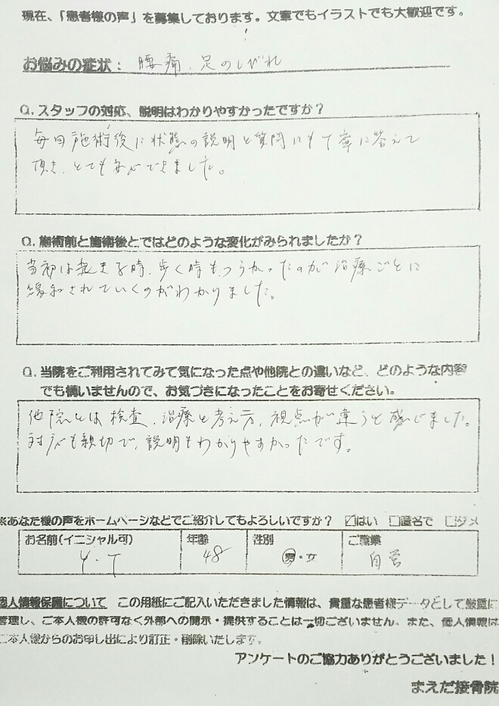 現在、「患者様の声」を募集しております。文章でもイラストでも大歓迎です。
お悩みの症状： 腰痛、足のしびれ
Q. スタッフの対応、説明はわかりやすかったですか？
毎回施術後に状態の説明と質問にも丁寧に答えて
頂き、とても安心できました。
Q. 施術前と施術後とではどのような変化がみられましたか？
当初は起きる時、歩く時もつらかったのが治療ごとに
緩和されていくのがわかりました。
Q. 当院をご利用されてみて気になった点や他院との違いなど、どのような内容
でも構いませんので、お気づきになったことをお寄せください。
他院とは検査、治療と考え方、視点が違うと感じました。
対応も親切で、説明もわかりやすかったです。
※あなた様の声をホームページなどでご紹介してもよろしいですか？ ☑はい □匿名で □ダメ
お名前(イニシャル可) 年齢 性別 ご職業
Y・T 48 男・女 自営
個人情報保護について この用紙にご記入いただきました情報は、貴重な患者様データとして厳重に
管理し、ご本人様の許可なく外部への開示・提供することは一切ございません。また、個人情報は
ご本人様からのお申し出により訂正・削除いたします。
アンケートのご協力ありがとうございました！
まえだ接骨院